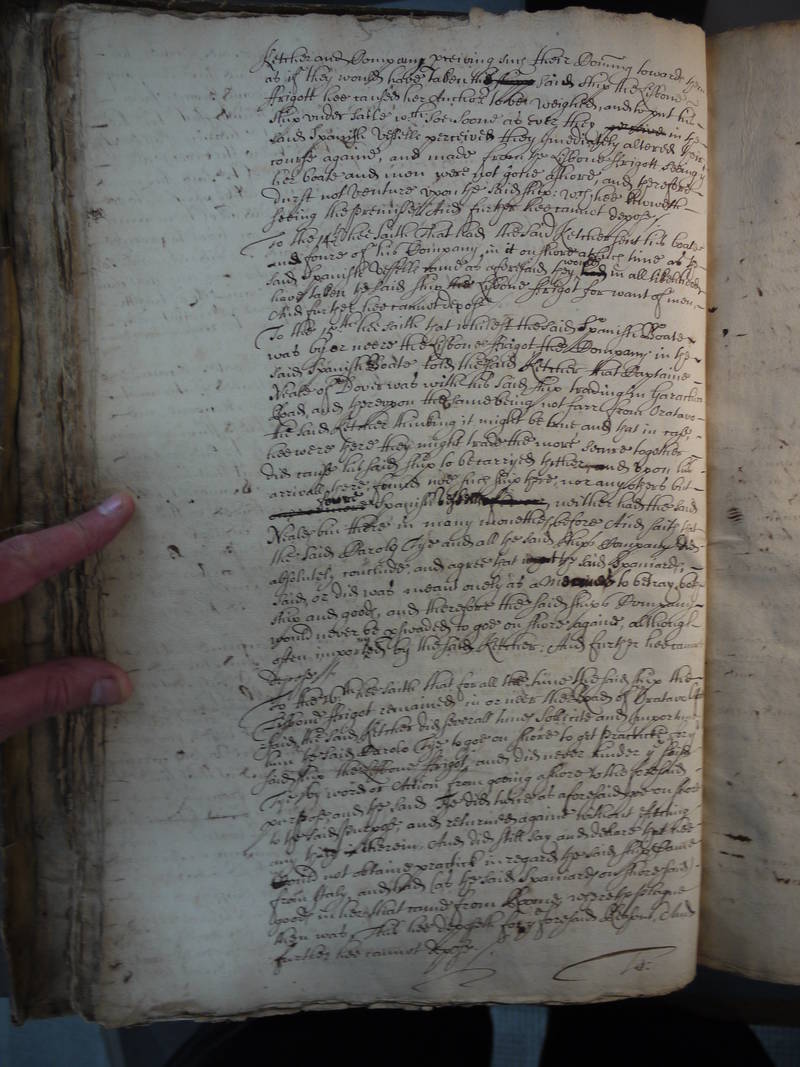 Ketcher and Company pceiving and their Comeing towards them
as if they would have taken the said ship the Lisbone
ffrigott hee caused her Anchor to bee weighed, and to put his
ship under saile wch soe soone as ever they in the
said Spanish Vessell perceived they imediately altered their
course againe, and made from the Lisbone ffrigott seeing
her boate and men were not gone ashore, and therefore
durst not venture upon the said ship: wch hee knoweth
seeing the premisses And further hee cannot depose./
To the 14th hee saith That had the said Ketcher sent his boate
and foure of his Company in it on shore at such time as the
said Spanish Vessell came as aforesaid they would in all likelihood
have taken the said ship the Lisbone ffrigot for want of men
And further hee cannot depose
To the 15th hee saith that whilest the said Spanish Boate
was by or neere the Lisbone ffrigott the Company in the
said Spanish Boate told the said Ketcher that Captaine
Neale of Dover was with his said ship trading in Garachica
Road, and thereupon the same being not farr from Oratavo
the said Ketcher thinking it might be true and that in case
hee were there they might trade the more secure together
did cause his said ship to be carryed thither and upon his
arrivall there, found noe such ship there, nor any others but
foure Spanish neither had the said
Neale bin there in many moneths before And saith that
the said Carolo Tye and all the said ships Company did
absolutely conclude, and agree that the said Spaniards
said, or did was meant onely as a to betray the
ship and goods, and therefore the said ships Company
would never be pswaded to goe on shore againe, although
often importuned by the said Ketcher: And further hee cannot
depose./
To the 16th hee saith that for all the time the said ship the
Lisbone ffrigot remained in or neer the Road of Oratavo
said, the said Ketcher did severall times sollicite and importune
him the said Carolo Tye to goe on shore to get practicke for
said ship the Lisbone ffrigot, and did never hinder said
Tye by word or Action from goeing ashore to the foresaid
purpose, and the said Tye did twice as aforesaid goe on shore
to the said purpose, and returned againe without effecting
any thing therein, And did still say and declare that hee
Could not obtaine practick in regard the said ship Came
from Italy and had (as the said Spaniards on shore said)
goods in her that came from Roome, where the plague
then was, This hee deposeth for foresaid Reasons, And
further hee cannot depose.